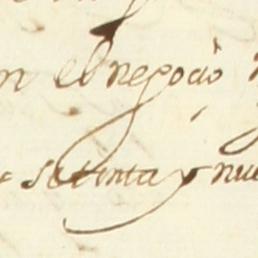 n el negocio
setenta y nue